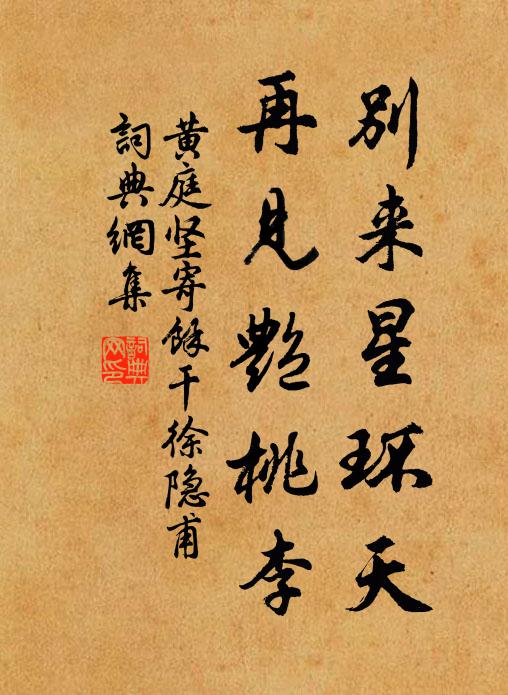 别来星环天
再见艳桃李
黄庭坚寄馀干徐隐甫
詞典網集